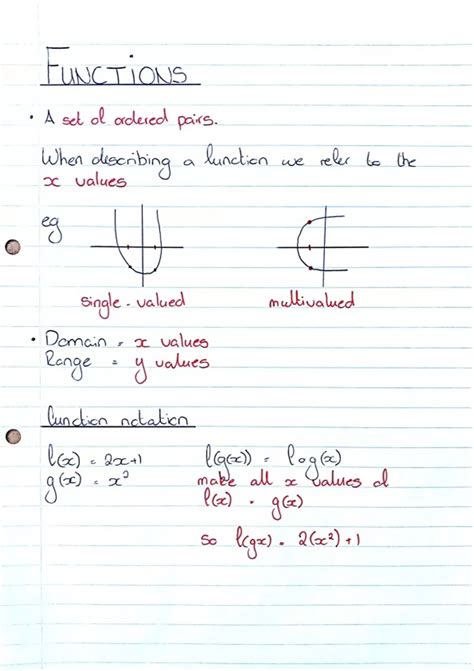 FUNCTIONS
• A set of ordered pairs.
When describing a function we refer to the
x values
eg
single-valued
multivalued
• Domain = x values
Range = y values
function notation
f(x) = 2x+1
f(g(x)) = fog(x)
g(x) = x²
make all x values of
f(x) = g(x)
so f(gx) = 2(x²)+1